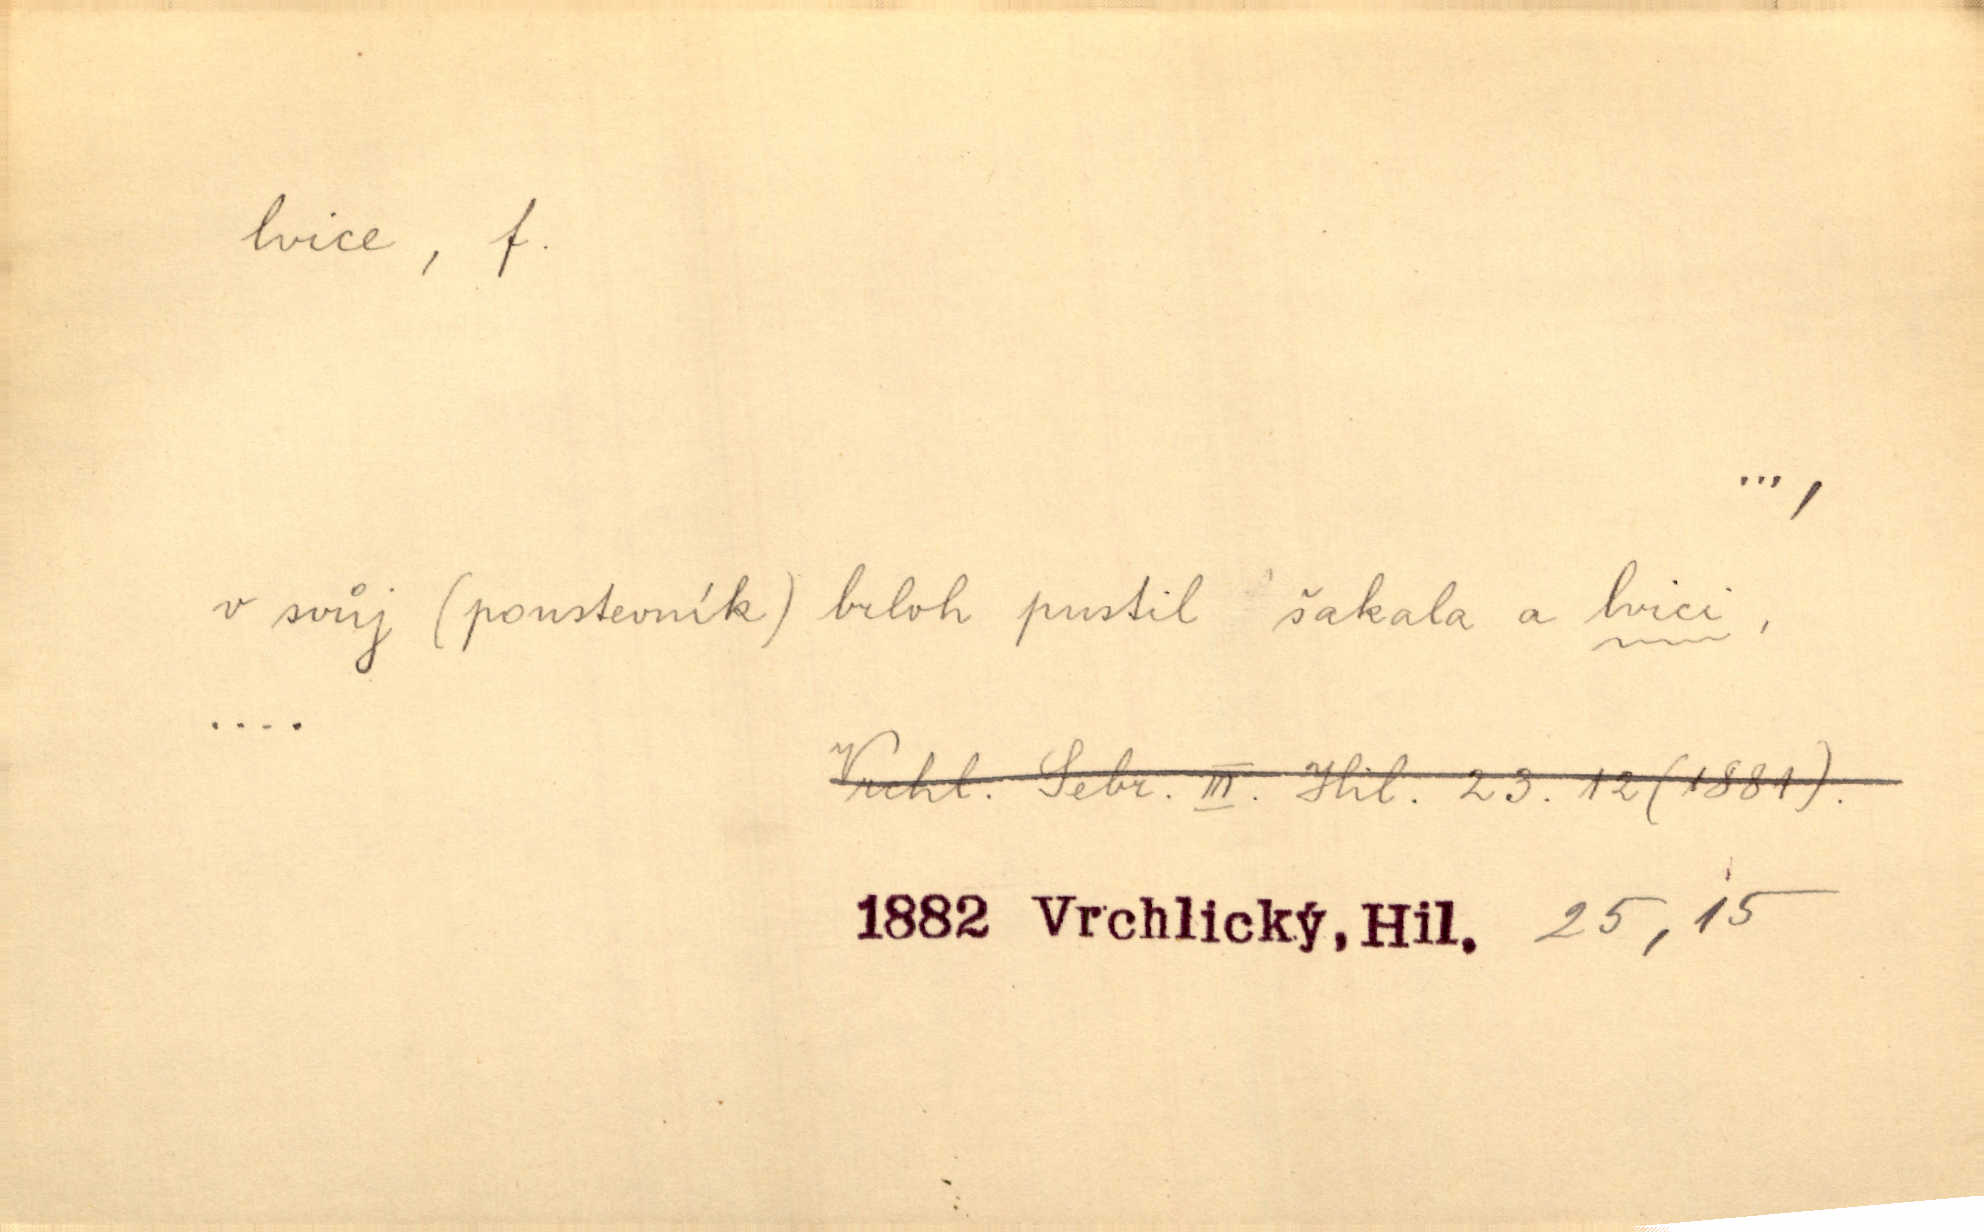 lvice, f.
...,
v svůj (poustevník) brloh pustil šakala a lvici,
....
Vrchl. Sebr. III. Hil. 23. 12 (1881).
1882 Vrchlický, Hil. 25, 15